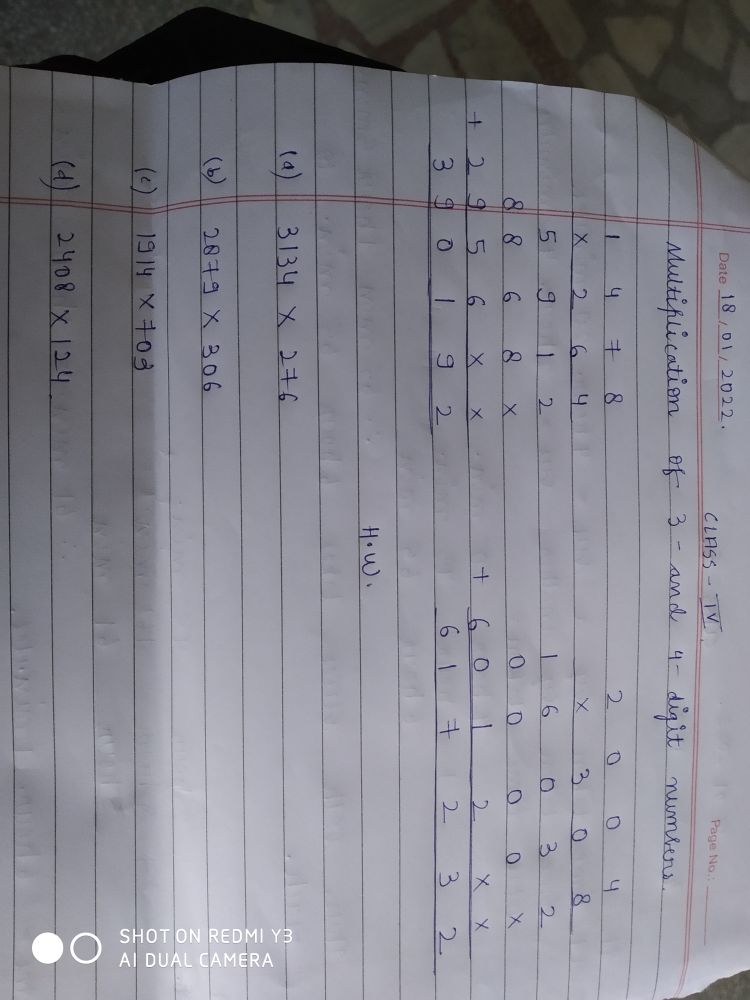 Date 18/01/2022.
Page No.:
CLASS - IV
Multiplication of 3 - and 4 - digit numbers.
1 4 7 8
× 2 6 4
5 9 1 2
8 8 6 8 ×
+ 2 9 5 6 × ×
3 9 0 1 9 2
2 0 0 4
× 3 0 8
1 6 0 3 2
0 0 0 0 ×
+ 6 0 1 2 × ×
6 1 7 2 3 2
H.W.
(a) 3134 × 276
(b) 2879 × 306
(c) 1914 × 709
(d) 2408 × 124
SHOT ON REDMI Y3
AI DUAL CAMERA